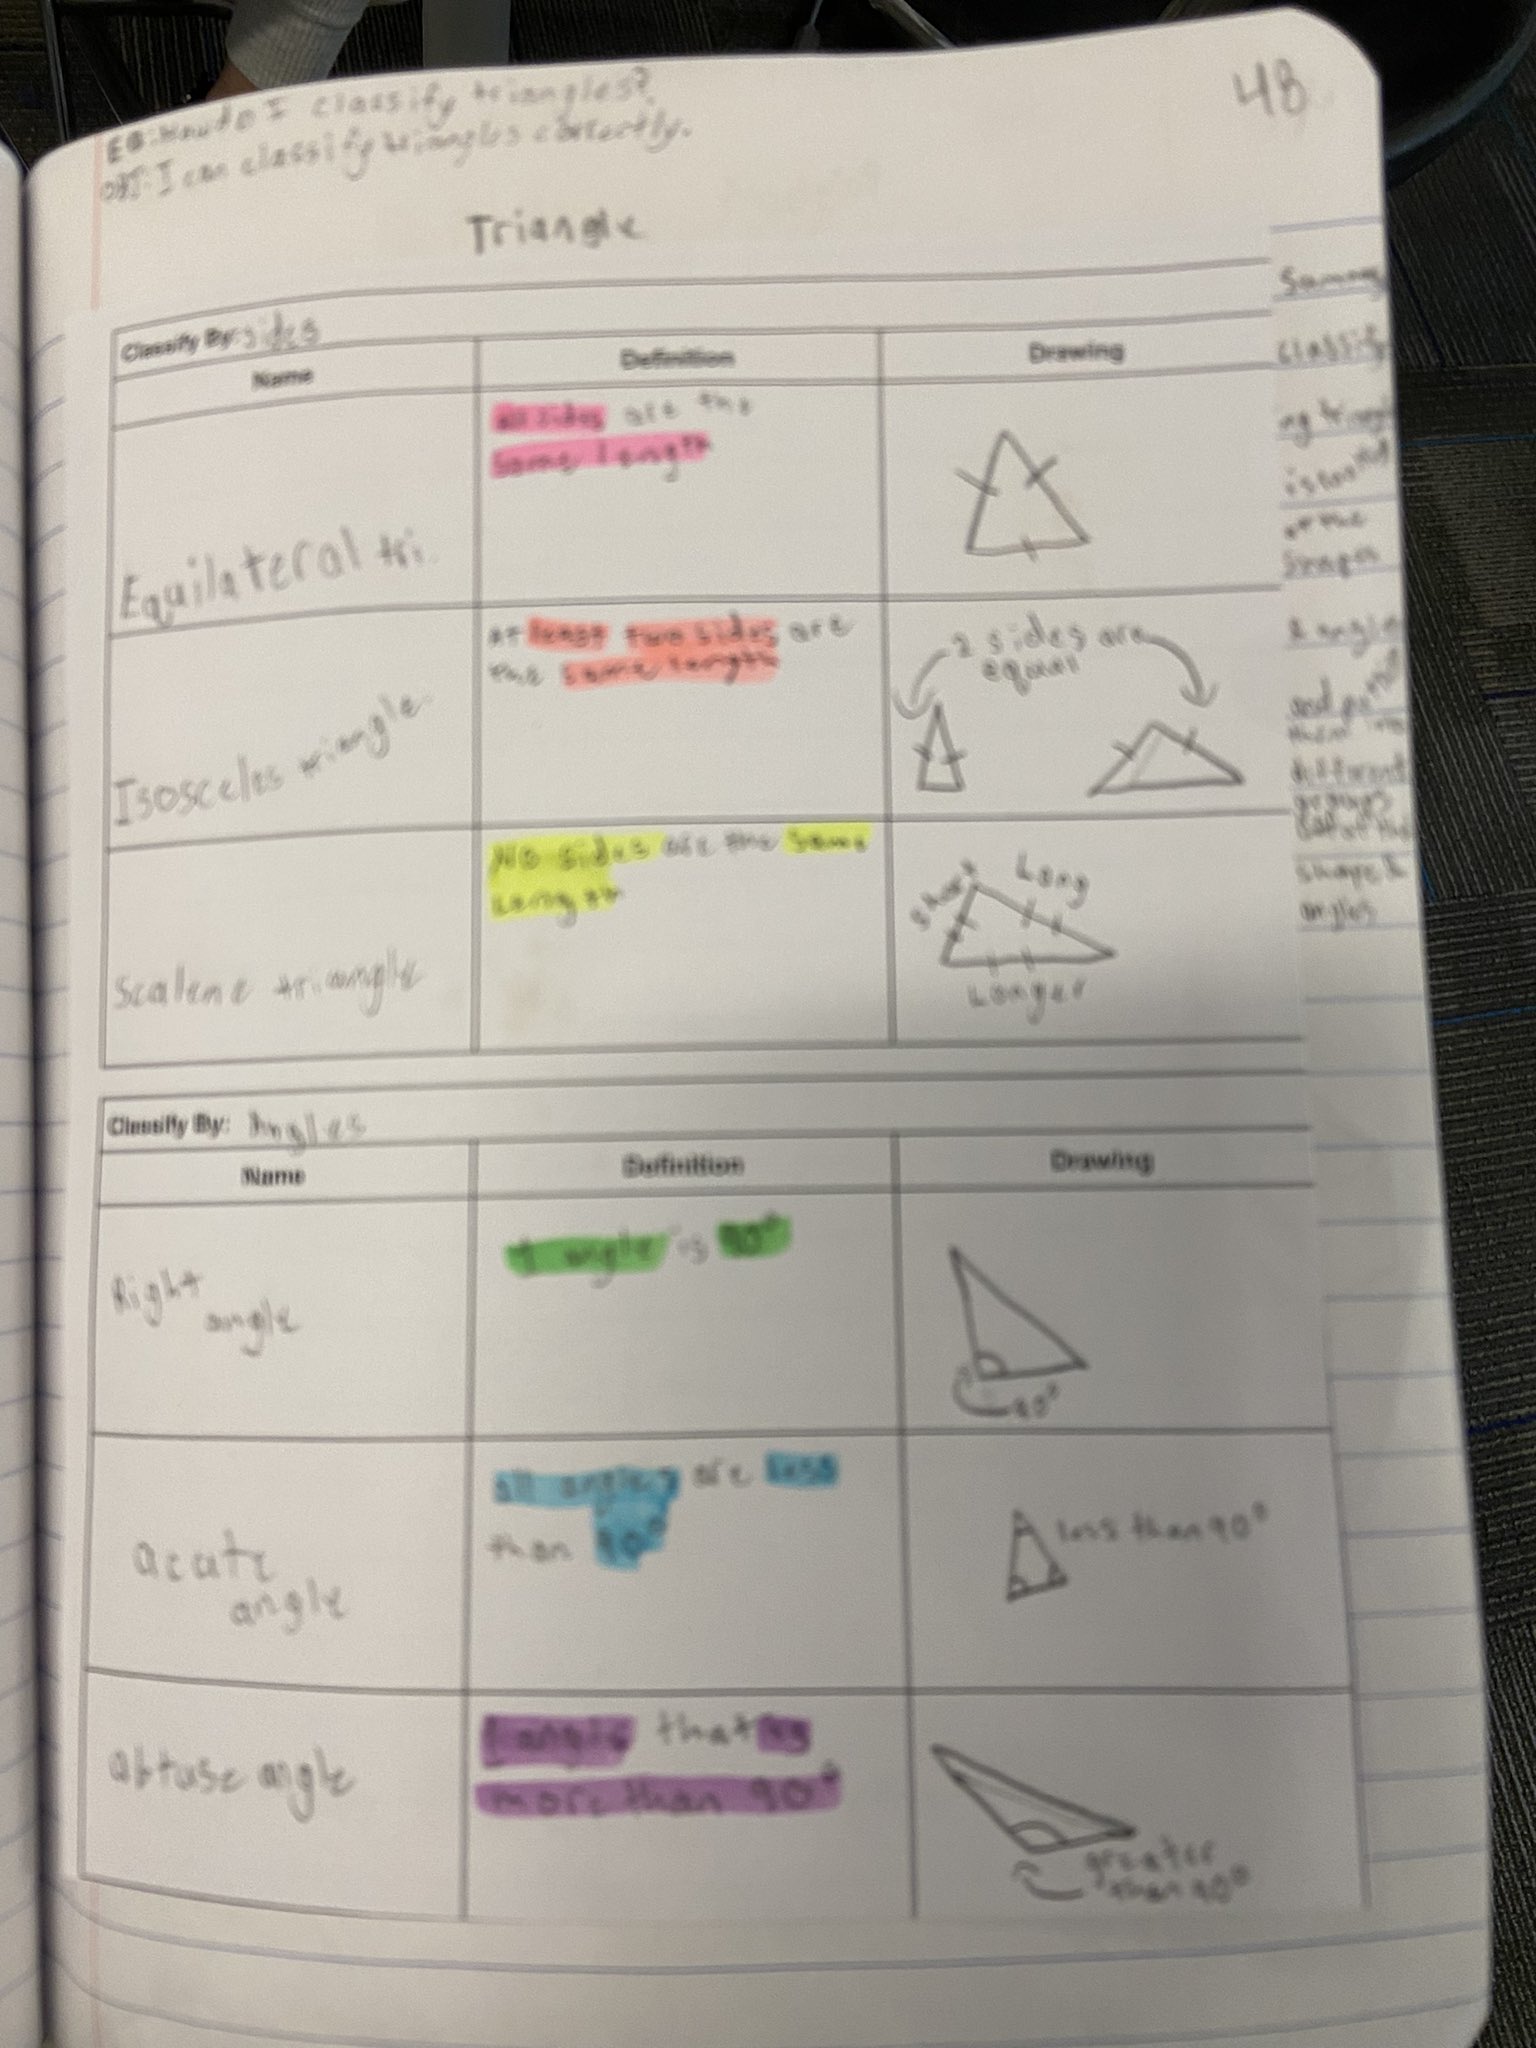 48
EQ: How do I classify triangles?
OBJ: I can classify triangles correctly.
Triangle
Classify By: sides
Name
Definition
Drawing
Equilateral tri.
all sides are the
same length
Isosceles triangle
At least two sides are
the same length
2 sides are
equal
Scalene triangle
No sides are the same
Length
short
Long
Longer
Classify By: Angles
Name
Definition
Drawing
Right
angle
1 angle is 90°
90°
acute
angle
all angles are less
than 90°
less than 90°
obtuse angle
1 angle that is
more than 90°
greater
than 90°
classify
ing
of the
shapes
& angles
and
different
groups
shape &
angles